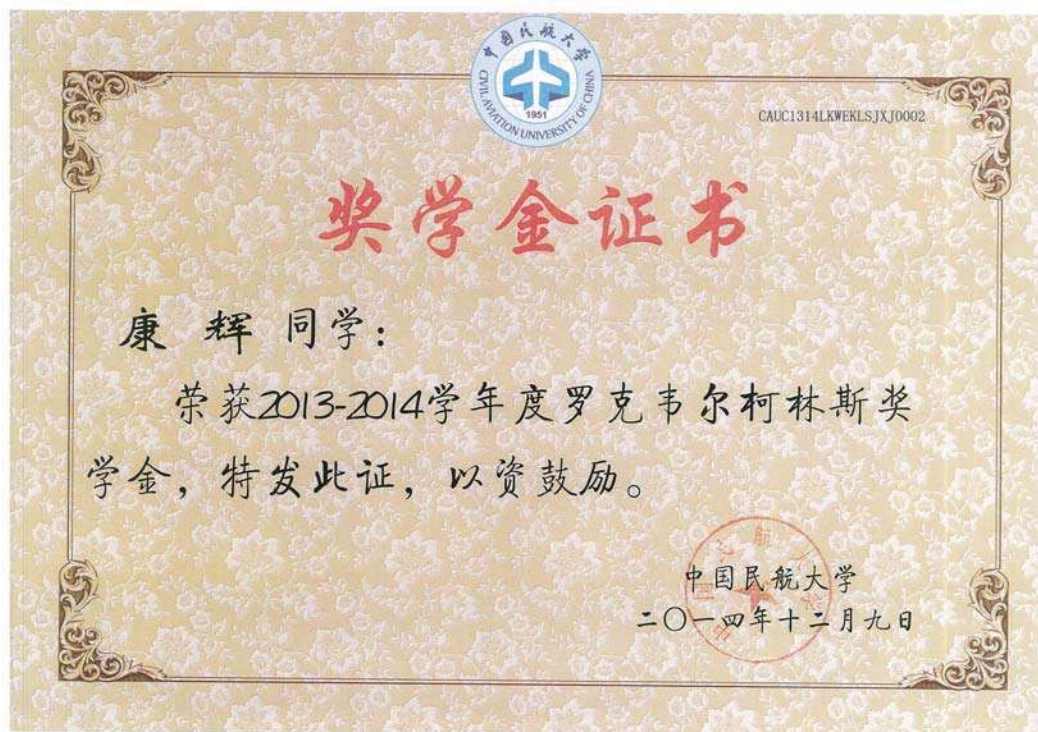 中国民航大学
CIVIL AVIATION UNIVERSITY OF CHINA
1951
CAUC1314LKWEKLSJXJ0002
奖学金证书
康 辉 同学：
荣获2013-2014学年度罗克韦尔柯林斯奖
学金，特发此证，以资鼓励。
中国民航大学
中国民航大学
二〇一四年十二月九日